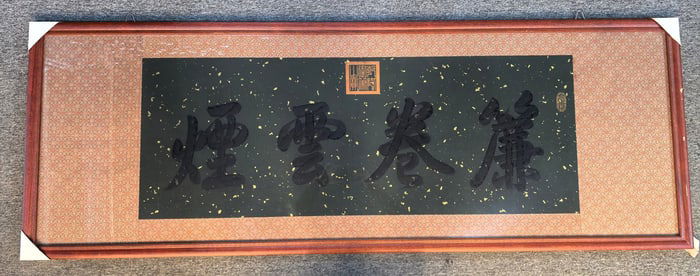 簾卷雲煙